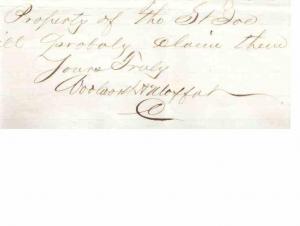 Property of the St Joe
ill probaly claim them
Yours Truly
Woolworth & Moffat